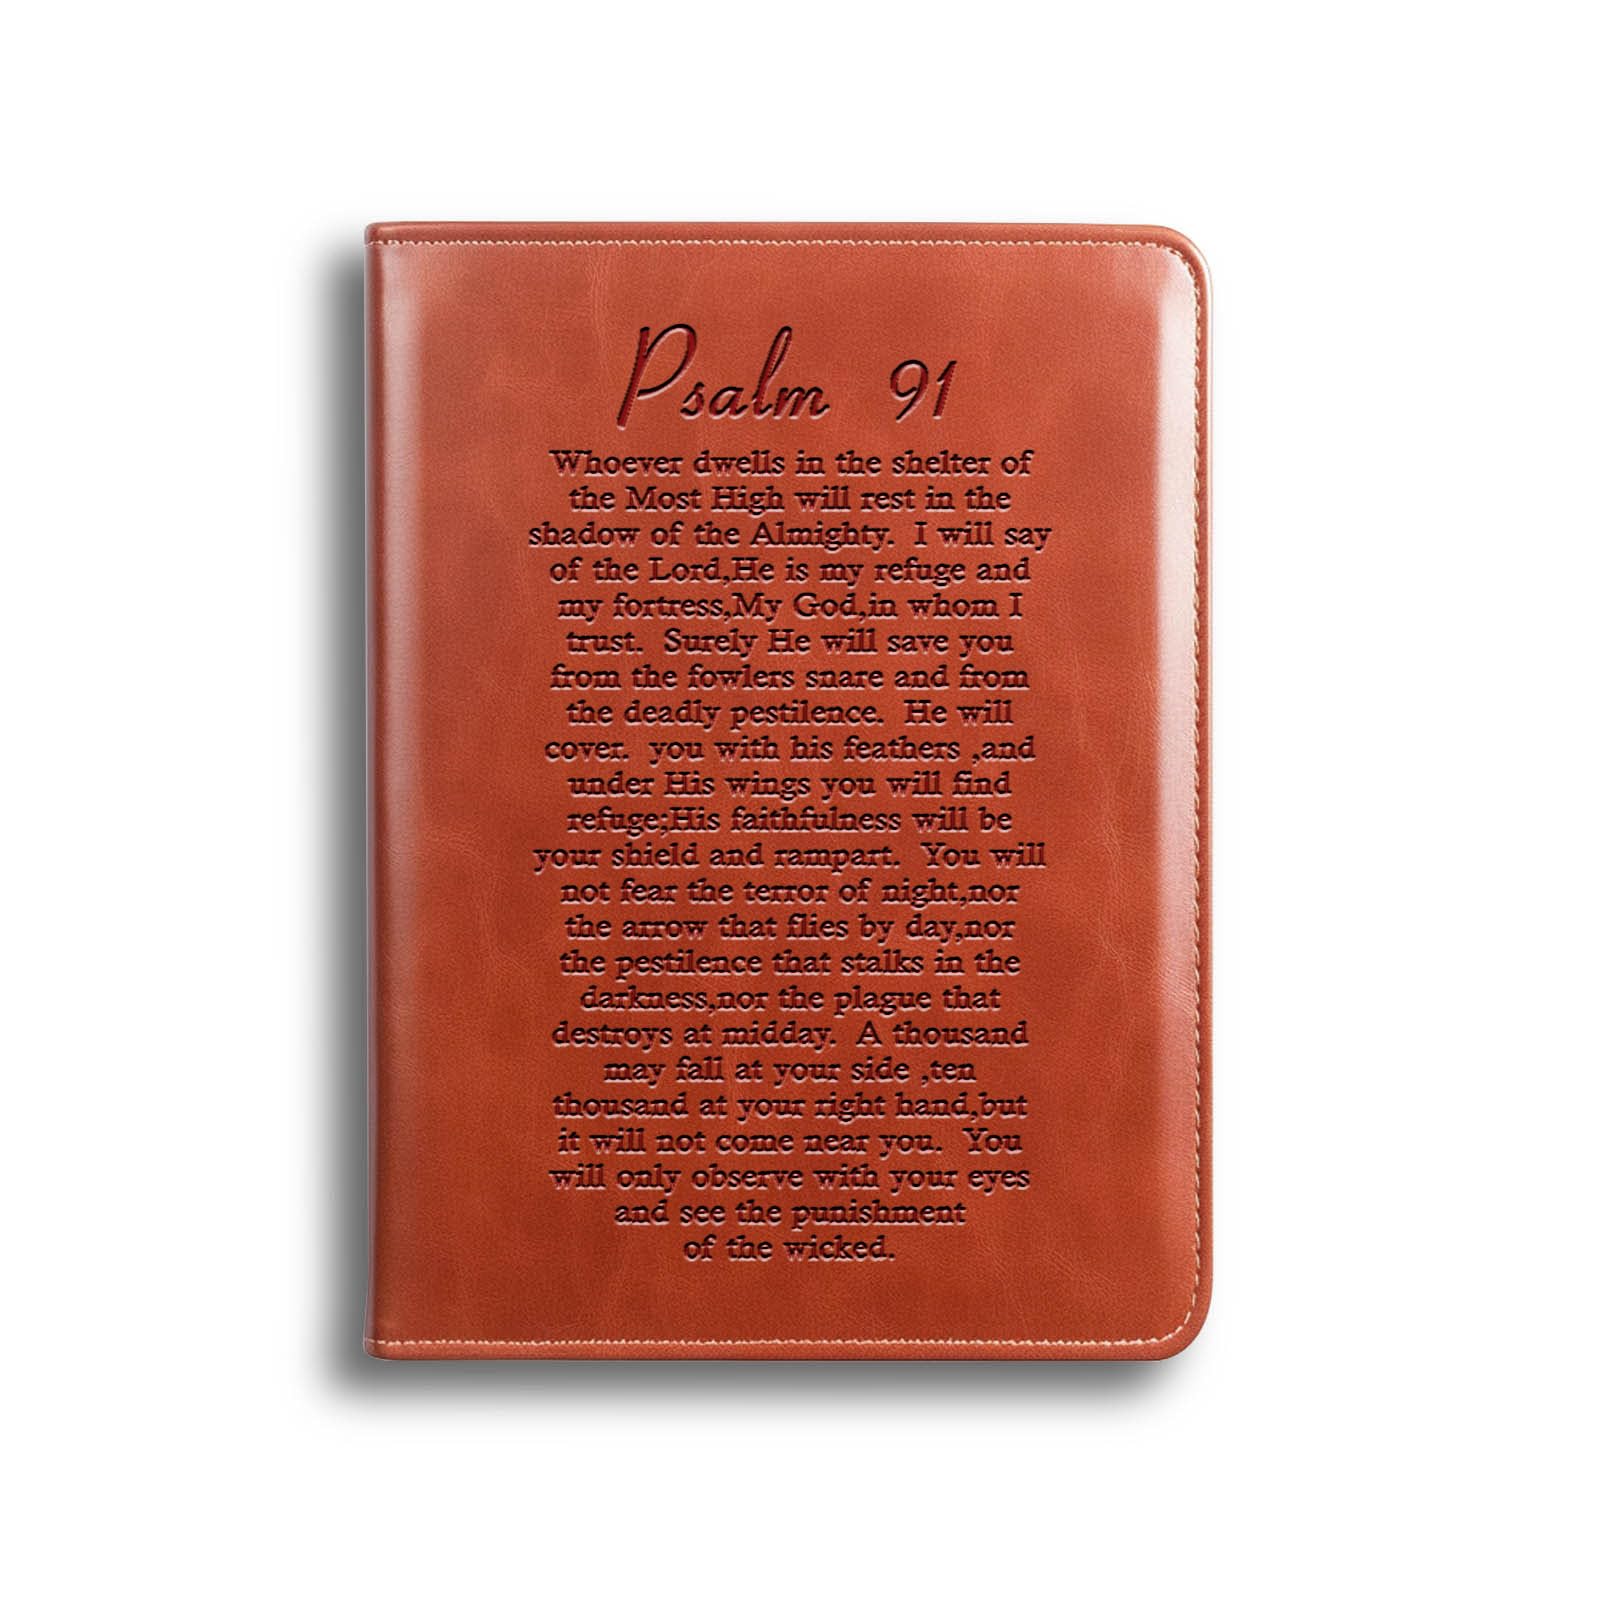 Psalm 91
Whoever dwells in the shelter of
the Most High will rest in the
shadow of the Almighty. I will say
of the Lord,He is my refuge and
my fortress,My God,in whom I
trust. Surely He will save you
from the fowlers snare and from
the deadly pestilence. He will
cover. you with his feathers ,and
under His wings you will find
refuge;His faithfulness will be
your shield and rampart. You will
not fear the terror of night,nor
the arrow that flies by day,nor
the pestilence that stalks in the
darkness,nor the plague that
destroys at midday. A thousand
may fall at your side ,ten
thousand at your right hand,but
it will not come near you. You
will only observe with your eyes
and see the punishment
of the wicked.